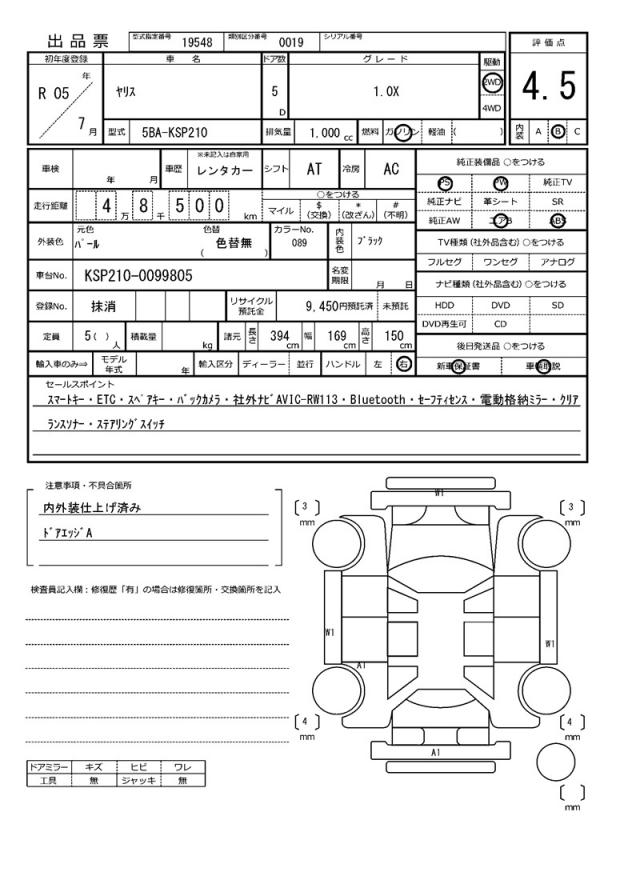 出品票 型式指定番号 19548 類別区分番号 0019 シリアル番号
評価点
4.5
内装 A B C
初年度登録 車名 ドア数 グレード 駆動
R 05 年 7 月 ヤリス 5 D 1.0X 2WD 4WD
型式 5BA-KSP210 排気量 1.000 cc 燃料 ガソリン 軽油 ( )
車検 年 月 車歴 ※未記入は自家用 レンタカー シフト AT 冷房 AC
走行距離 4 万 8 千 5 0 0 km
○をつける
マイル $ (交換) * (改ざん) # (不明)
外装色 元色 パール 色替 色替無 ( ) カラーNo. 089 内装色 ブラック
車台No. KSP210-0099805 名変期限 月 日
登録No. 抹消 リサイクル預託金 9,450円預託済 未預託
定員 5( ) 人 積載量 kg 諸元 長さ 394 cm 幅 169 cm 高さ 150 cm
輸入車のみ⇒ モデル年式 年 輸入区分 ディーラー 並行 ハンドル 左 右
純正装備品 ○をつける
PS PW 純正TV
純正ナビ 革シート SR
純正AW エアB ABS
TV種類(社外品含む)○をつける
フルセグ ワンセグ アナログ
ナビ種類(社外品含む)○をつける
HDD DVD SD
DVD再生可 CD
後日発送品 ○をつける
新車保証書 車輌取説
セールスポイント
スマートキー・ETC・スペアキー・バックカメラ・社外ナビAVIC-RW113・Bluetooth・セーフティセンス・電動格納ミラー・クリア
ランスソナー・ステアリングスイッチ
注意事項・不具合箇所
内外装仕上げ済み
ドアエッジA
検査員記入欄:修復歴「有」の場合は修復箇所・交換箇所を記入
ドアミラー キズ ヒビ ワレ
工具 無 ジャッキ 無
W1
[3] mm
[3] mm
W1
W1
A1
[4] mm
[4] mm
A1
[ ] mm